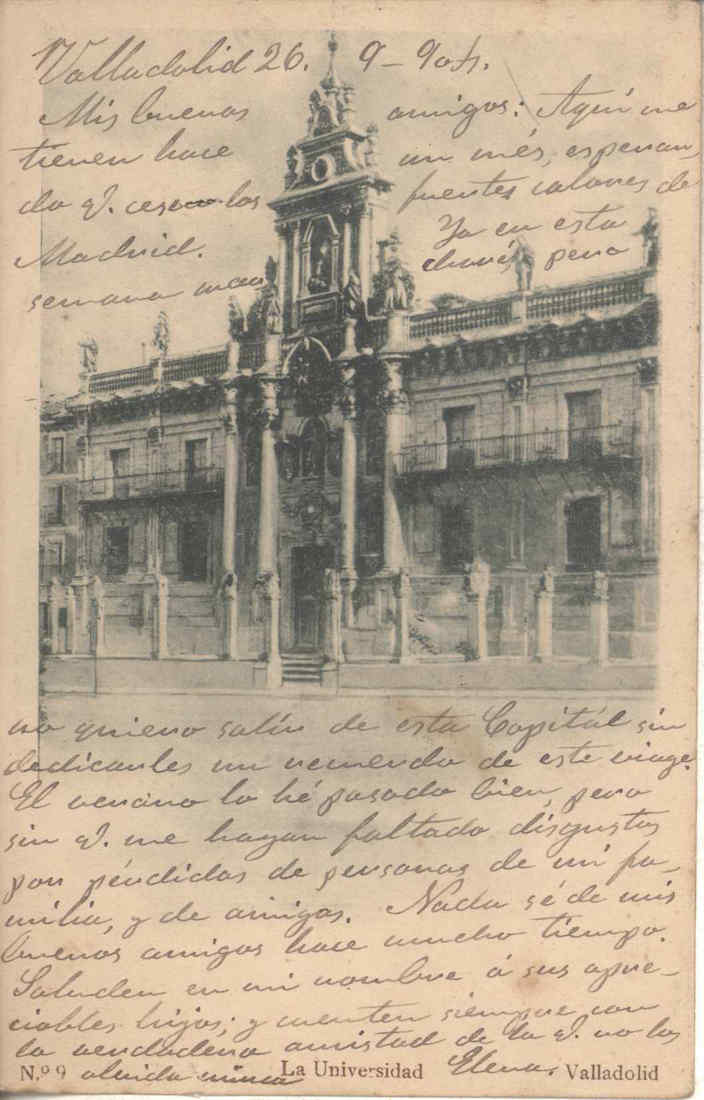 Valladolid 26. 9-904.
Mis buenos amigos: Aquí me
tienen hace un més, esperan,
do q. cesen los fuentes calores de
Madrid. Ya en esta
semana marcharé, pero
no quiero salir de esta Capitál sin
dedicarles un recuerdo de este viage.
El verano lo hé pasado bien, pero
sin q. me hayan faltado disgustos
por pérdidas de personas de mi fa-
milia, y de amigos. Nada sé de mis
buenos amigos hace mucho tiempo.
Saluden en mi nombre á sus apre-
ciables hijos; y cuenten siempre con
la verdadera amistad de la q. no los
olvida nunca Elena.
N.º 9 La Universidad Valladolid